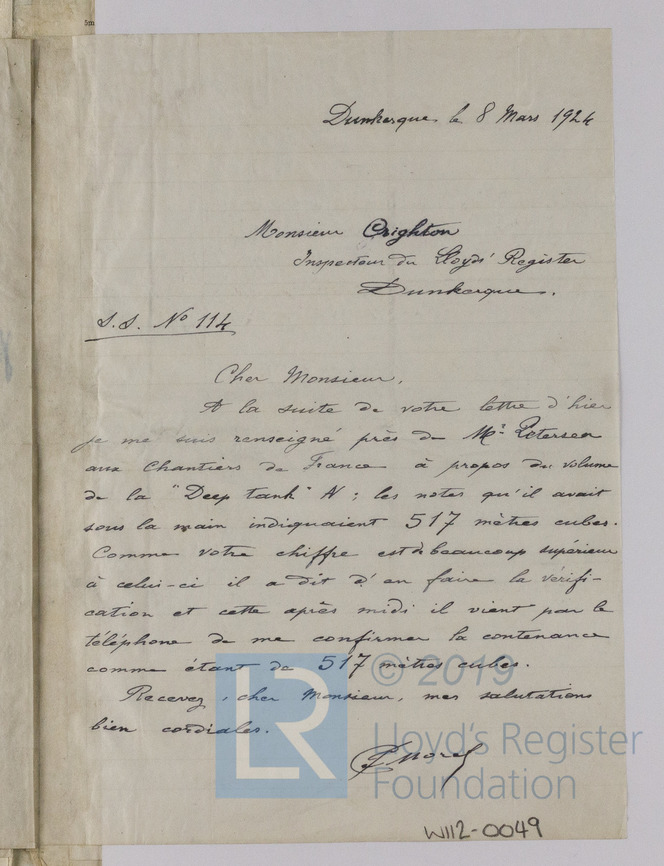 Dunkerque le 8 Mars 1924
Monsieur Crighton
Inspecteur du Lloyds' Register
Dunkerque.
S.S. No 114
Cher Monsieur,
A la suite de votre lettre d'hier
je me suis renseigné près de Mr. Petersen
aux Chantiers de France à propos du volume
de la "Deep tank" N; les notes qu'il avait
sous la main indiquaient 517 mètres cubes.
Comme votre chiffre est de beaucoup supérieur
à celui-ci il a dit d'en faire la vérifi-
cation et cette après midi il vient par le
téléphone de me confirmer la contenance
comme étant de 517 mètres cubes.
Recevez, cher Monsieur, mes salutations
bien cordiales.
Morel
LR © 2019
Lloyd's Register
Foundation
W112-0049